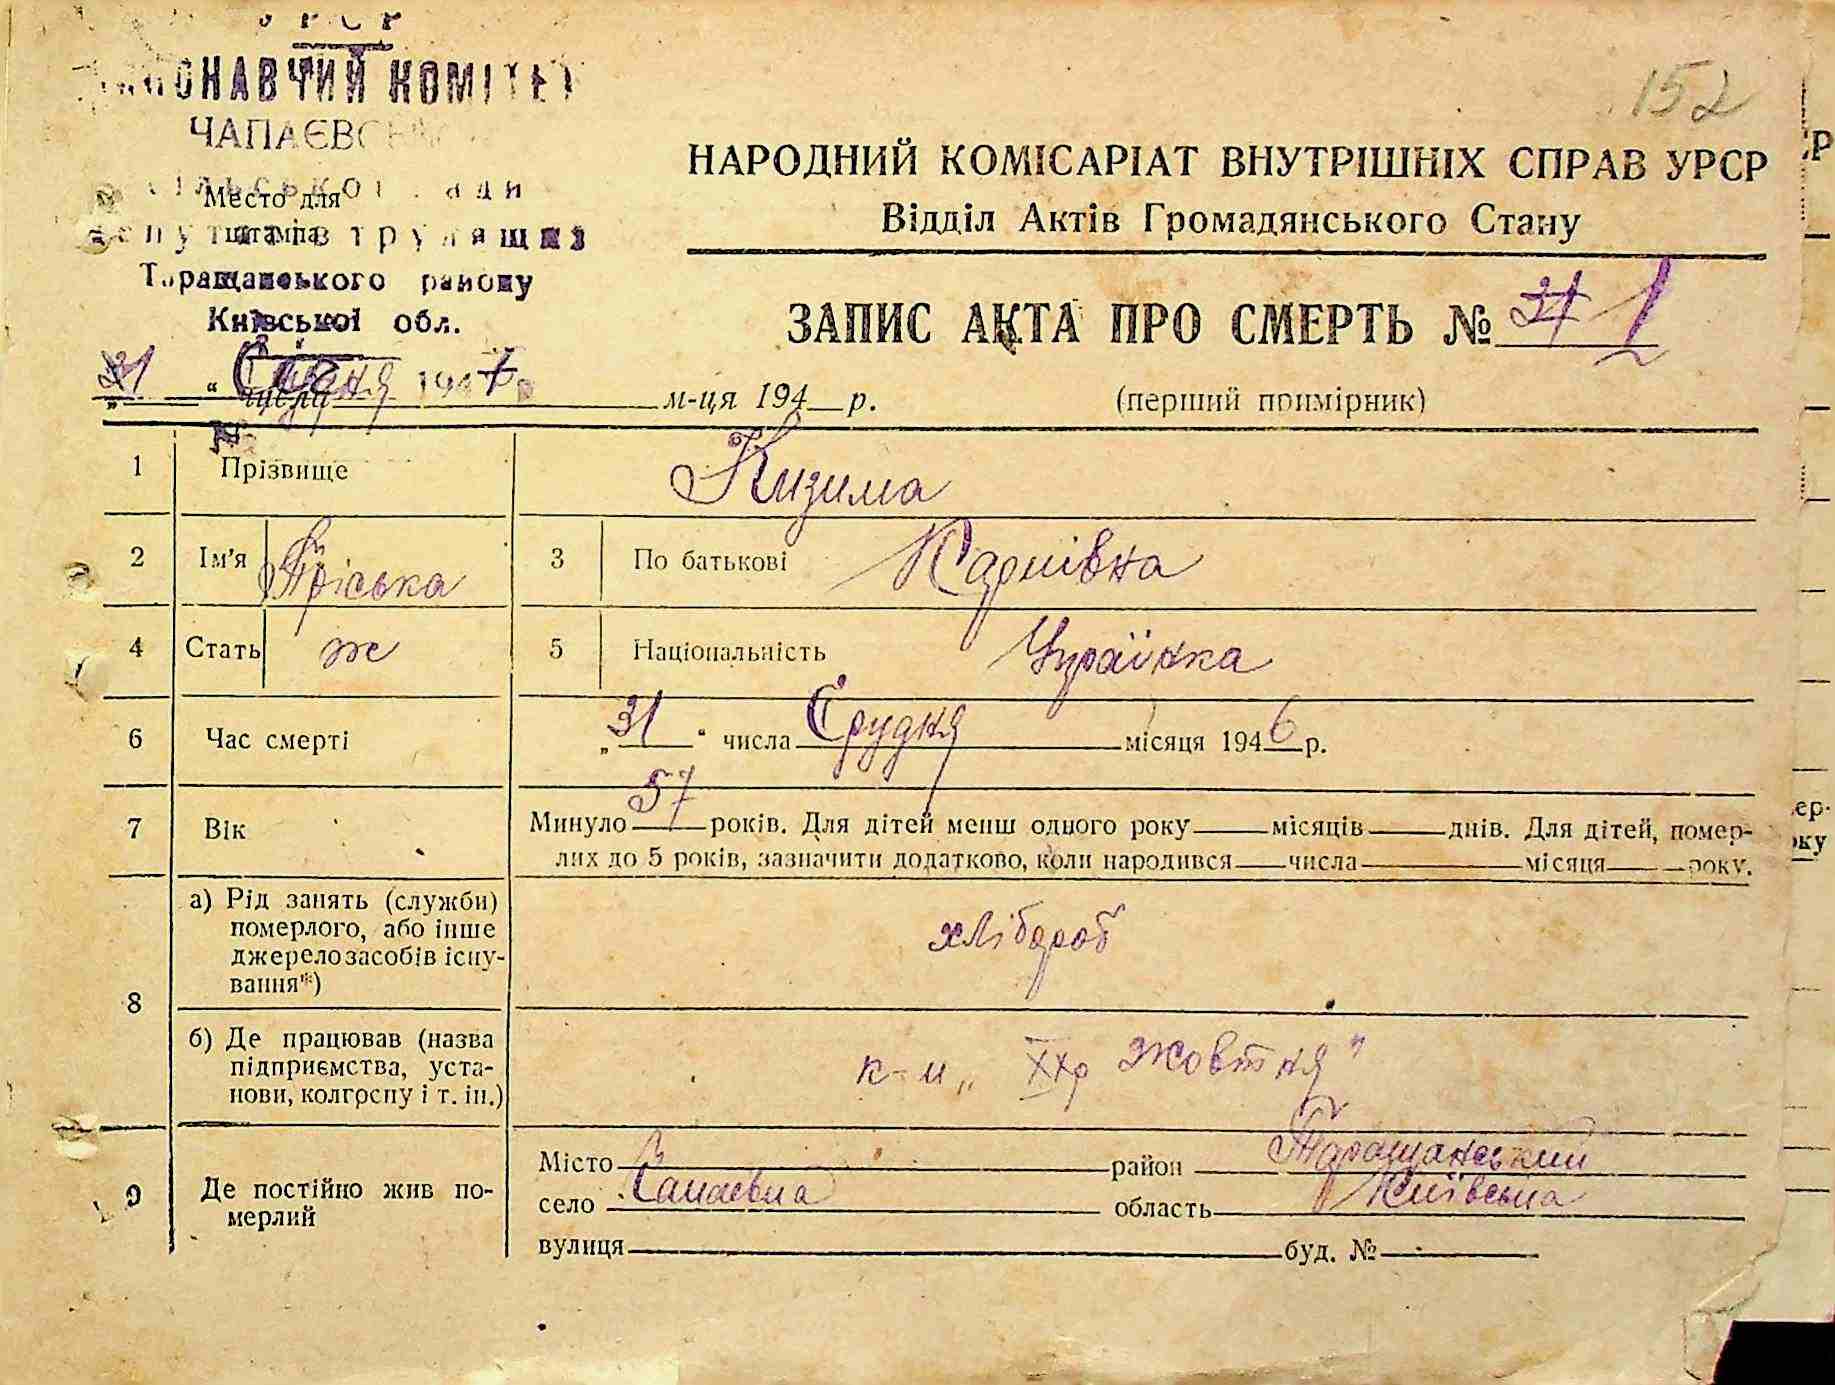 УРСР
ВИКОНАВЧИЙ КОМІТЕТ
ЧАПАЄВСЬКОЇ
СІЛЬСЬКОЇ РАДИ
Место для
штампа
депутатів трудящих
Таращанського району
Київської обл.
31 Грудня 1947 р
№
152
НАРОДНИЙ КОМІСАРІАТ ВНУТРІШНІХ СПРАВ УРСР
Відділ Актів Громадянського Стану
ЗАПИС АКТА ПРО СМЕРТЬ № 1
„ “ числа м-ця 194 р. (перший примірник)
1 Прізвище Кизима
2 Ім'я Пріська 3 По батькові Карпівна
4 Стать ж 5 Національність Українка
6 Час смерті „31“ числа Грудня місяця 1946 р.
7 Вік Минуло 57 років. Для дітей менш одного року місяців днів. Для дітей, помер-
лих до 5 років, зазначити додатково, коли народився числа місяця року.
8 а) Рід занять (служби)
померлого, або інше
джерело засобів існу-
вання*)
хлібороб
б) Де працював (назва
підприємства, уста-
нови, колгоспу і т. ін.)
к-п „ХХр Жовтня"
9 Де постійно жив по-
мерлий
Місто район Таращанський
село Чапаєвка область Київська
вулиця буд. №